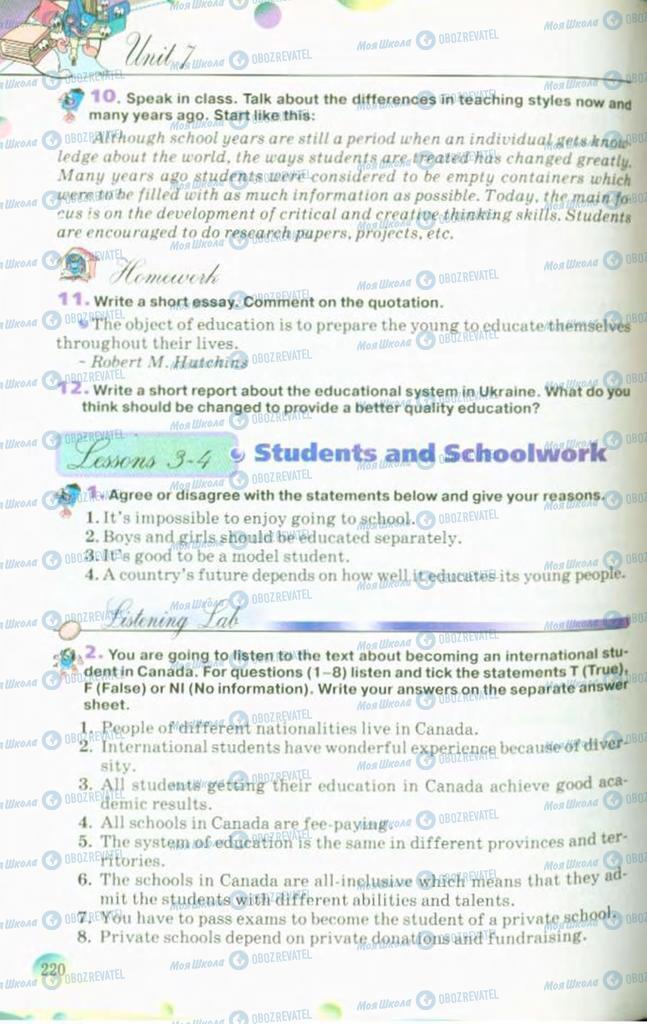 Unit 7
10. Speak in class. Talk about the differences in teaching styles now and
many years ago. Start like this:
Although school years are still a period when an individual gets know-
ledge about the world, the ways students are treated has changed greatly.
Many years ago students were considered to be empty containers which
were to be filled with as much information as possible. Today, the main fo-
cus is on the development of critical and creative thinking skills. Students
are encouraged to do research papers, projects, etc.
Homework
11. Write a short essay. Comment on the quotation.
The object of education is to prepare the young to educate themselves
throughout their lives.
- Robert M. Hutchins
12. Write a short report about the educational system in Ukraine. What do you
think should be changed to provide a better quality education?
Lessons 3-4 Students and Schoolwork
1. Agree or disagree with the statements below and give your reasons.
1. It's impossible to enjoy going to school.
2. Boys and girls should be educated separately.
3. It's good to be a model student.
4. A country's future depends on how well it educates its young people.
Listening Lab
2. You are going to listen to the text about becoming an international stu-
dent in Canada. For questions (1–8) listen and tick the statements T (True),
F (False) or NI (No information). Write your answers on the separate answer
sheet.
1. People of different nationalities live in Canada.
2. International students have wonderful experience because of diver-
sity.
3. All students getting their education in Canada achieve good aca-
demic results.
4. All schools in Canada are fee-paying.
5. The system of education is the same in different provinces and ter-
ritories.
6. The schools in Canada are all-inclusive which means that they ad-
mit the students with different abilities and talents.
7. You have to pass exams to become the student of a private school.
8. Private schools depend on private donations and fundraising.
220